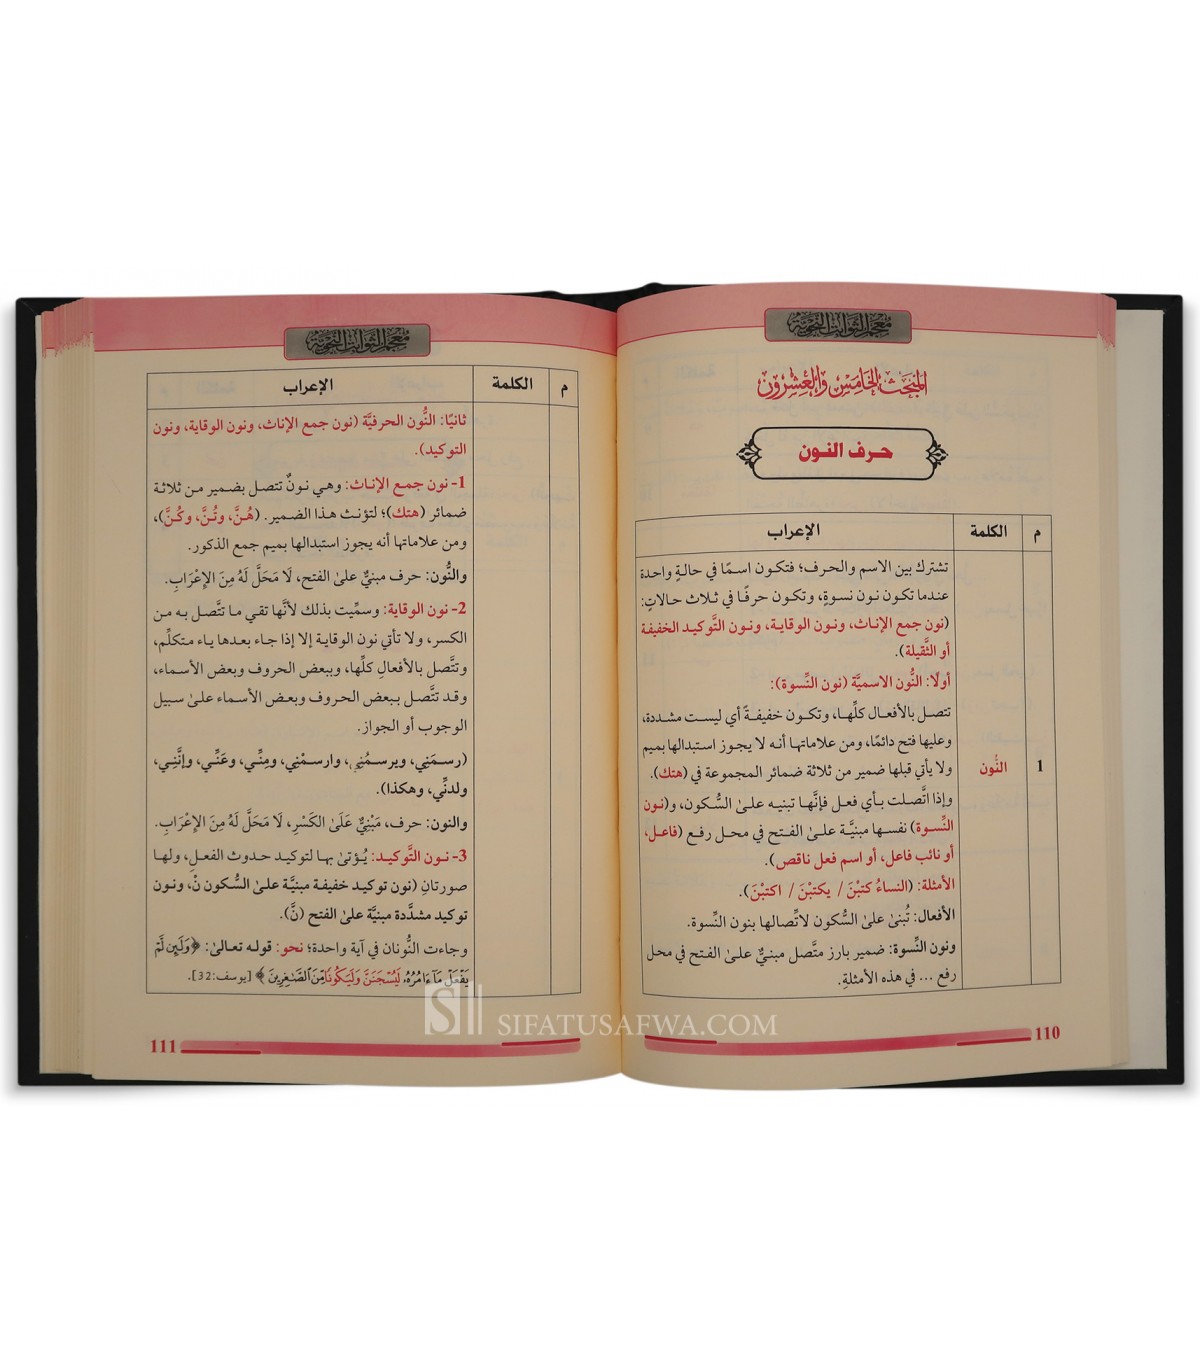 معجم الثوابت النحوية
المبحث الخامس والعشرون
حرف النون
م الكلمة الإعراب
تشترك بين الاسم والحرف؛ فتكون اسمًا في حالةٍ واحدة
عندما تكون نون نسوةٍ، وتكون حرفًا في ثلاث حالاتٍ:
(نون جمع الإناث، ونون الوقاية، ونون التَّوكيد الخفيفة
أو الثَّقيلة).
أولًا: النُّون الاسميَّة (نون النِّسوة):
تتصل بالأفعال كلِّها، وتكون خفيفةً أي ليست مشددة،
وعليها فتح دائمًا، ومن علاماتها أنه لا يجوز استبدالها بميم
ولا يأتي قبلها ضمير من ثلاثة ضمائر المجموعة في (هتك).
1 النُّون
وإذا اتَّصلت بأي فعل فإنَّها تبنيه علىٰ السُّكون، و(نون
النِّسوة) نفسها مبنيَّة علىٰ الفتح في محل رفع (فاعل،
أو نائب فاعل، أو اسم فعل ناقص).
الأمثلة: (النساءُ كتبْنَ / يكتبْنَ / اكتبْنَ).
الأفعال: تُبنىٰ علىٰ السُّكون لاتِّصالها بنون النِّسوة.
ونون النِّسوة: ضمير بارز متَّصل مبنيٌّ علىٰ الفتح في محل
رفع ... في هذه الأمثلةِ.
110
معجم الثوابت النحوية
م الكلمة الإعراب
ثانيًا: النُّون الحرفيَّة (نون جمع الإناث، ونون الوقاية، ونون
التوكيد).
1- نون جمع الإناث: وهي نونٌ تتصل بضمير من ثلاثة
ضمائر (هتك)؛ لتؤنث هذا الضمير. (هُنَّ، وتُنَّ، وكُنَّ)،
ومن علاماتها أنه يجوز استبدالها بميم جمع الذكور.
والنُّون: حرف مبنيٌّ علىٰ الفتح، لَا مَحَلَّ لَهُ مِنَ الإِعْرَابِ.
2- نون الوقاية: وسمِّيت بذلك لأنَّها تقي ما تتَّصل به من
الكسر، ولا تأتي نون الوقاية إلا إذا جاء بعدها ياء متكلِّم،
وتتَّصل بالأفعالِ كلِّها، وببعض الحروف وبعض الأسماء،
وقد تتَّصل ببعض الحروف وبعض الأسماء علىٰ سبيل
الوجوب أو الجواز.
(رسمَني، ويرسمُني، وارسمْني، ومِنِّي، وعَنِّي، وإنَّنِي،
ولدنِّي، وهكذا).
والنون: حرف، مَبْنِيٌّ عَلَىٰ الكَسْرِ، لَا مَحَلَّ لَهُ مِنَ الإِعْرَابِ.
3- نون التَّوكيد: يُؤتىٰ بها لتوكيد حدوث الفعلِ، ولها
صورتانِ (نون توكيد خفيفة مبنية علىٰ السُّكون نْ، ونون
توكيد مشدَّدة مبنيَّة علىٰ الفتح (نَّ).
وجاءت النُّونان في آية واحدة؛ نحو: قوله تعالىٰ: ﴿وَلَئِن لَّمْ
يَفْعَلْ مَآ ءَامُرُهُۥ لَيُسْجَنَنَّ وَلَيَكُونًا مِّنَ ٱلصَّٰغِرِينَ﴾ [يوسف:32].
111
SIFATUSAFWA.COM